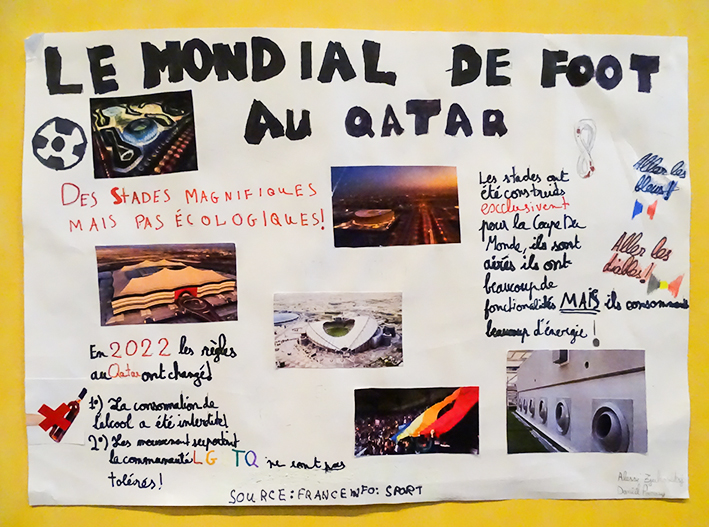 LE MONDIAL DE FOOT
AU QATAR
DES STADES MAGNIFIQUES
MAIS PAS ÉCOLOGIQUES!
Les stades ont
été construids
exclusivent
pour la Coupe Du
Monde, ils sont
aérés ils ont
beaucoup de
fonctionalités MAIS ils consomment
beaucoup d'énergie !
Aller les
bleus!!
Aller les
diables!
En 2022 les règles
au Qatar ont changés!
1°) La consommation de
l'alcool a été interdite!
2°) Les mouvement
la communauté LG TQ ne sont pas
tolérés!
SOURCE: FRANCEINFO: SPORT